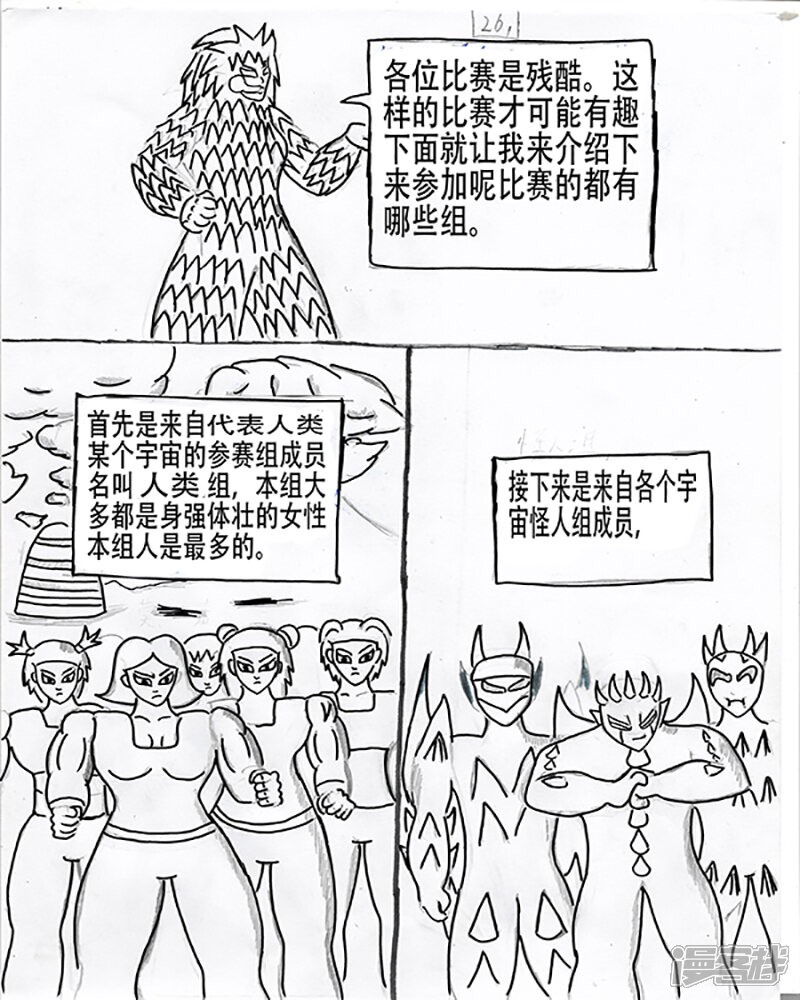 26,
各位比赛是残酷。这
样的比赛才可能有趣
下面就让我来介绍下
来参加呢比赛的都有
哪些组。
首先是来自代表人类
某个宇宙的参赛组成员
名叫人类组，本组大
多都是身强体壮的女性
本组人是最多的。
接下来是来自各个宇
宙怪人组成员,
漫客栈